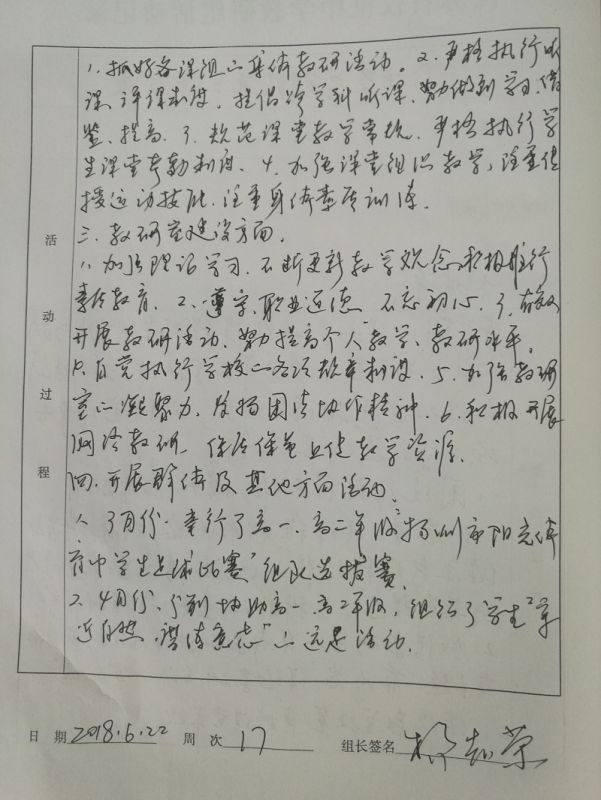 1、抓好各课组的集体教研活动。2、严格执行听
课、评课制度，提倡跨学科听课，努力做到学习、借
鉴、提高。3、规范课堂教学常规，严格执行学
生课堂考勤制度。4、加强课堂组织教学，注重传
授运动技能，注重身体素质训练。
三、教研室建设方面。
1、加强理论学习，不断更新教学观念，积极推行
素质教育。2、遵守职业道德，不忘初心。3、有效
开展教研活动、努力提高个人教学、教研水平。
4、自觉执行学校的各项规章制度。5、加强教研
室的凝聚力，发扬团结协作精神。6、积极开展
网络教研，保质保量上传教学资源。
四、开展群体及其他方面活动。
1、3月份，举行了高一、高二年级"扬州市阳光体
育中学生足球比赛"组队选拔赛。
2、4月份，分别协助高一、高二年级，组织了学生"亲
近自然，锻炼意志"的远足活动。
活动过程
日 期 2018.6.22 周 次 17 组长签名